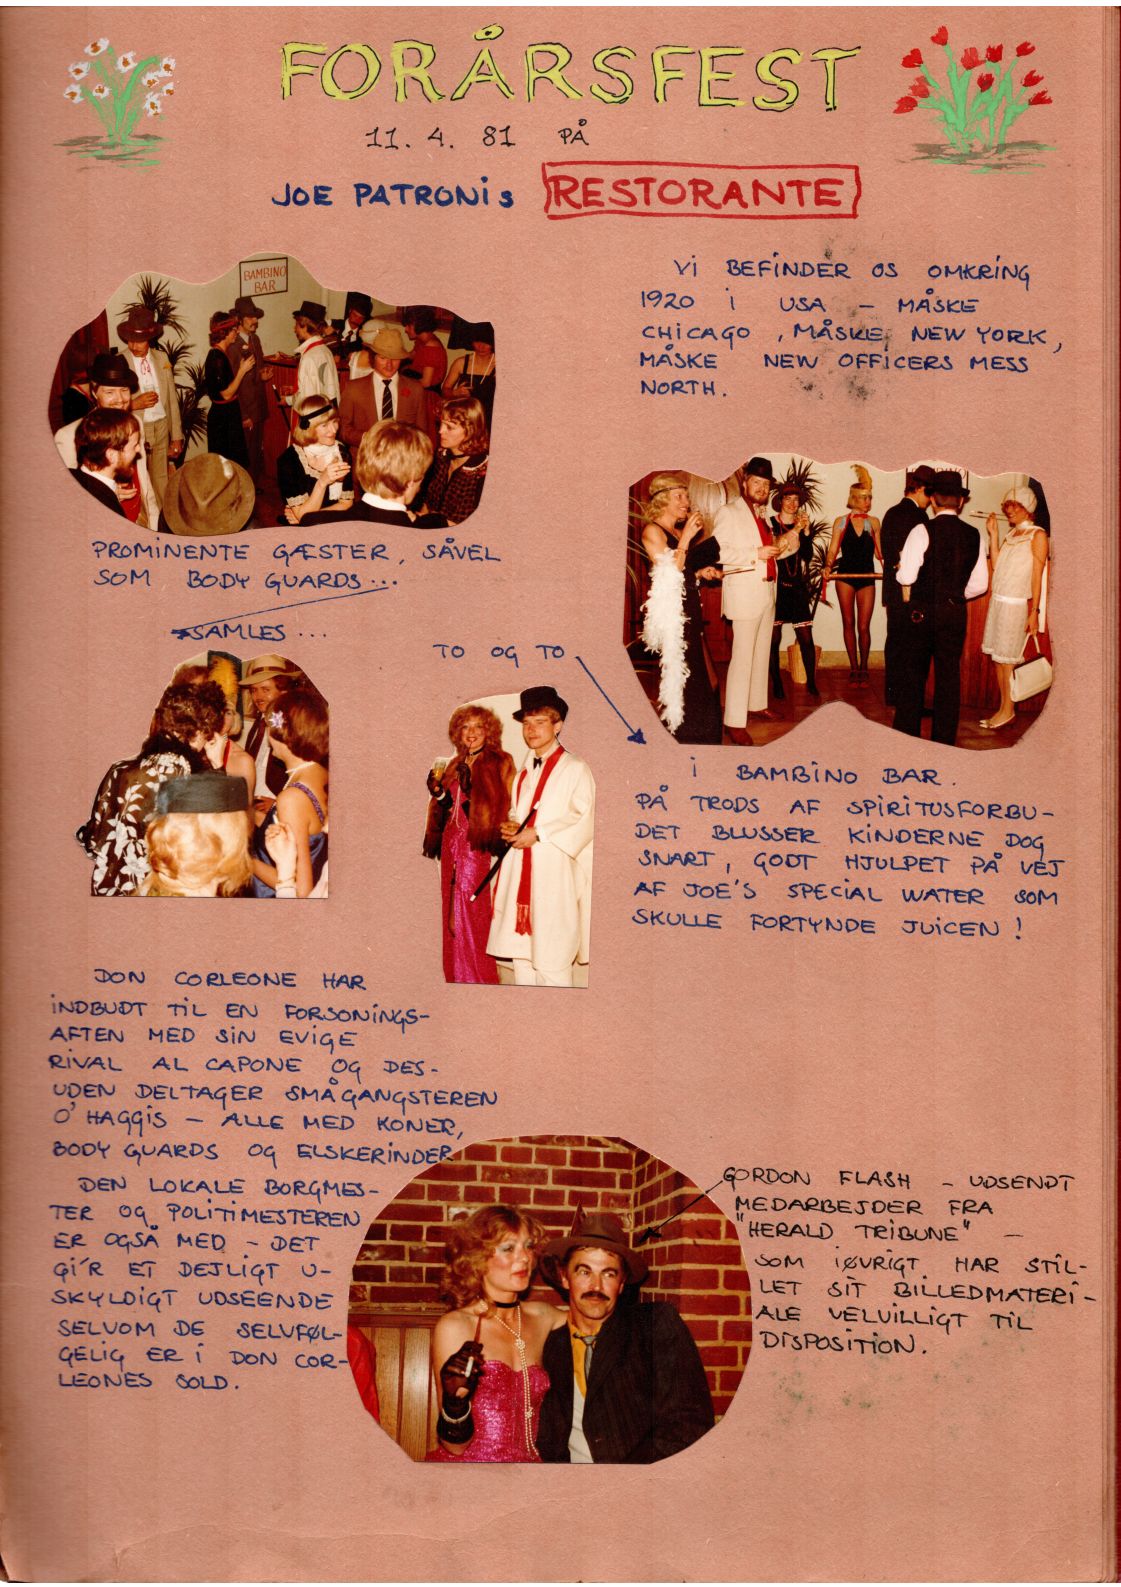 FORÅRSFEST
11. 4. 81 PÅ
JOE PATRONIS RESTORANTE
BAMBINO
BAR
VI BEFINDER OS OMKRING
1920 I USA – MÅSKE
CHICAGO , MÅSKE NEW YORK,
MÅSKE NEW OFFICERS MESS
NORTH.
PROMINENTE GÆSTER, SÅVEL
SOM BODY GUARDS...
SAMLES ...
TO OG TO
I BAMBINO BAR.
PÅ TRODS AF SPIRITUSFORBU-
DET BLUSSER KINDERNE DOG
SNART, GODT HJULPET PÅ VEJ
AF JOE'S SPECIAL WATER SOM
SKULLE FORTYNDE JUICEN !
DON CORLEONE HAR
INDBUDT TIL EN FORSONINGS-
AFTEN MED SIN EVIGE
RIVAL AL CAPONE OG DES-
UDEN DELTAGER SMÅGANGSTEREN
O'HAGGIS – ALLE MED KONER,
BODY GUARDS OG ELSKERINDER
DEN LOKALE BORGMES-
TER OG POLITIMESTEREN
ER OGSÅ MED – DET
GI'R ET DEJLIGT U-
SKYLDIGT UDSEENDE
SELVOM DE SELVFØL-
GELIG ER I DON COR-
LEONES SOLD.
GORDON FLASH – UDSENDT
MEDARBEJDER FRA
"HERALD TRIBUNE" –
SOM IØVRIGT HAR STIL-
LET SIT BILLEDMATERI-
ALE VELVILLIGT TIL
DISPOSITION.